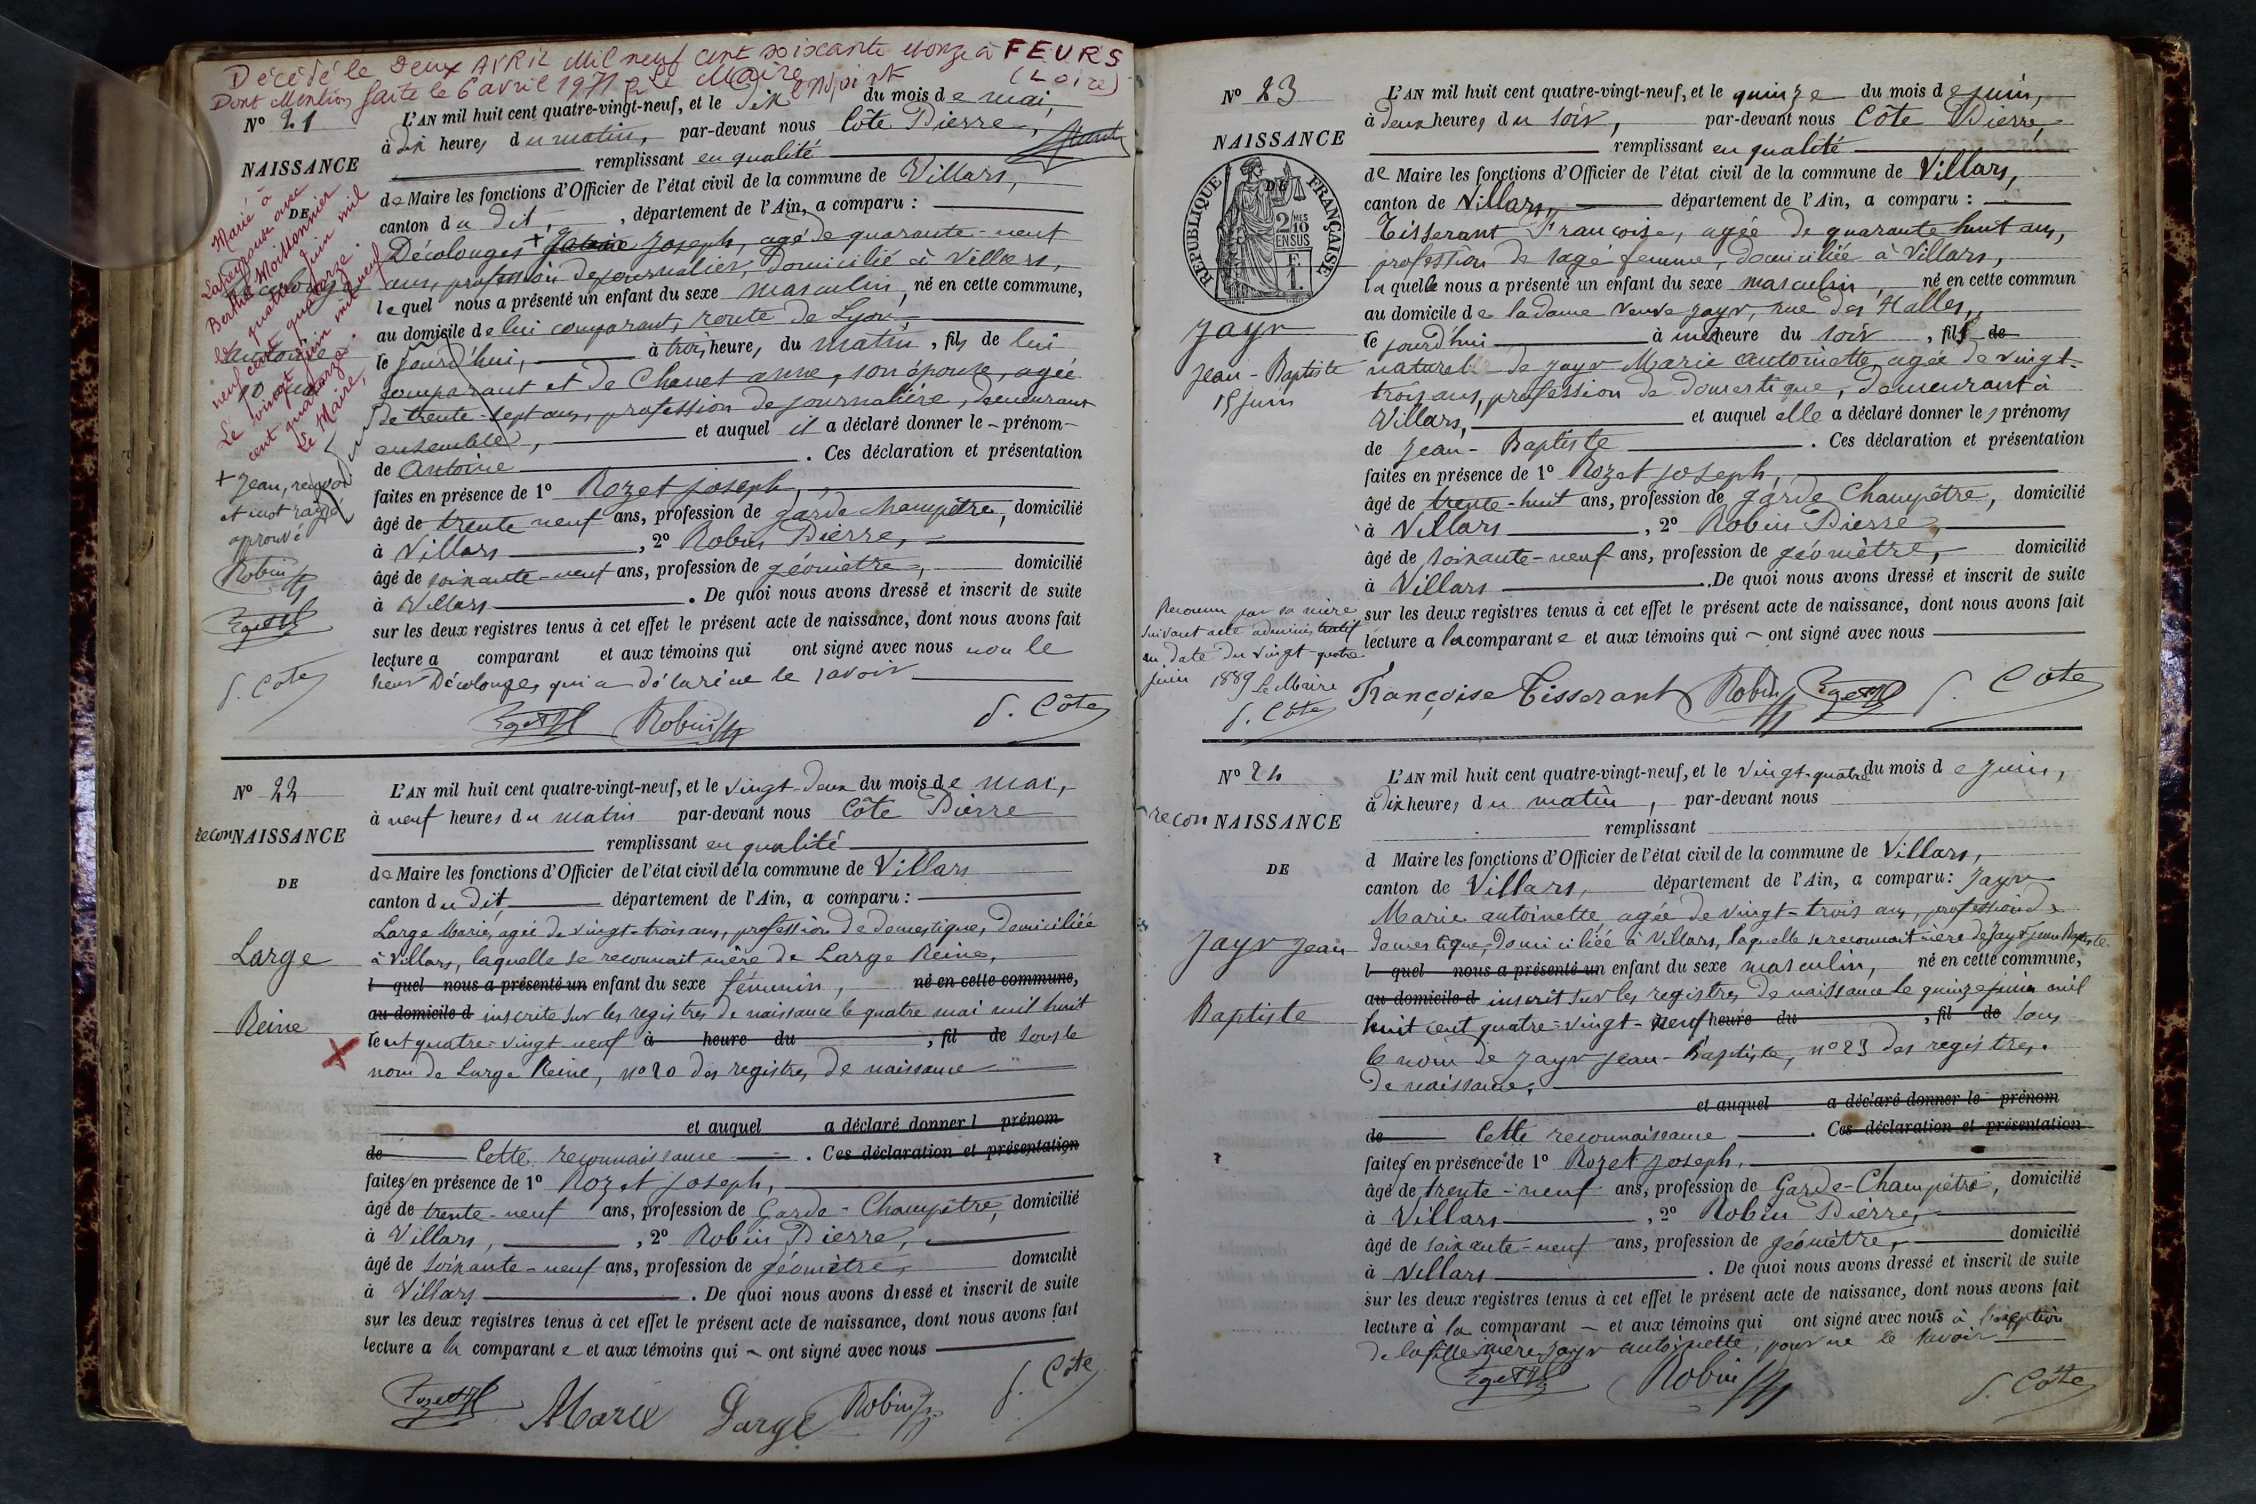 Décédé le Deux AVRIL Mil neuf cent soixante et onze à FEURS
(Loire)
Dont Mention faite le 6 avril 1971 Le Maire
N° 21
NAISSANCE
DE
Décolonges
Antoine
10 mai
Marié à
Lapeyrouse avec
Berthe Moissonnier
le quatre Juin mil
neuf cent quatorze.
Le vingt Juin mil neuf
cent quatorze.
Le Maire,
+ Jean, renvoi
et mot rayé
approuvé
Robin
Rozet
P. Côte
L'AN mil huit cent quatre-vingt-neuf, et le Dix du mois de mai,
à dix heures du matin, par-devant nous Côte Pierre,
remplissant en qualité
de Maire les fonctions d'Officier de l'état civil de la commune de Villars,
canton du dit, département de l'Ain, a comparu :
Décolonges + Joseph, agé de quarante-neuf
ans, profession de journalier, domicilié à Villars,
lequel nous a présenté un enfant du sexe masculin, né en cette commune,
au domicile de lui comparant, route de Lyon,
le jourd'hui, à trois heures du matin, fils de lui
comparant et de Chanet anne, son épouse, agée
de trente-sept ans, profession de journalière, demeurant
ensemble, et auquel il a déclaré donner le prénom
de Antoine. Ces déclaration et présentation
faites en présence de 1° Rozet joseph,
âgé de trente neuf ans, profession de garde champêtre, domicilié
à Villars, 2° Robin Pierre,
âgé de soixante-neuf ans, profession de géomètre, domicilié
à Villars. De quoi nous avons dressé et inscrit de suite
sur les deux registres tenus à cet effet le présent acte de naissance, dont nous avons fait
lecture a comparant et aux témoins qui ont signé avec nous non le
sieur Décolonges qui a déclaré ne le savoir
Rozet Robin P. Côte
N° 22
reconNAISSANCE
DE
Large
Reine
L'AN mil huit cent quatre-vingt-neuf, et le vingt-deux du mois de mai,
à neuf heures du matin par-devant nous Côte Pierre
remplissant en qualité
de Maire les fonctions d'Officier de l'état civil de la commune de Villars
canton du dit, département de l'Ain, a comparu :
Large Marie, agée de vingt-trois ans, profession de domestique, domiciliée
à Villars, laquelle se reconnait mère de Large Reine,
l quel nous a présenté un enfant du sexe féminin, né en cette commune,
au domicile d inscrite sur les registres de naissance le quatre mai mil huit
cent quatre-vingt neuf à heure du , fil de sous le
nom de Large Reine, n° 20 des registres de naissance
et auquel a déclaré donner l prénom
de Cette reconnaissance. Ces déclaration et présentation
faites en présence de 1° Rozet joseph,
âgé de trente-neuf ans, profession de Garde-Champêtre, domicilié
à Villars, 2° Robin Pierre,
âgé de soixante-neuf ans, profession de géomètre, domicilié
à Villars. De quoi nous avons dressé et inscrit de suite
sur les deux registres tenus à cet effet le présent acte de naissance, dont nous avons fait
lecture a la comparante et aux témoins qui ont signé avec nous
Rozet Marie Large Robin P. Côte
N° 23
NAISSANCE
DE
RÉPUBLIQUE FRANÇAISE
2/10 MES
EN SUS
F.
1.
Jayr
Jean-Baptiste
15 Juin
Reconnu par sa mère
suivant acte administratif
en date du vingt-quatre
juin 1889 Le Maire
P. Côte
L'AN mil huit cent quatre-vingt-neuf, et le quinze du mois de juin,
à deux heures du soir, par-devant nous Côte Pierre,
remplissant en qualité
de Maire les fonctions d'Officier de l'état civil de la commune de Villars,
canton de Villars, département de l'Ain, a comparu :
Tisserant Françoise, agée de quarante huit ans,
profession de sage femme, domiciliée à Villars,
laquelle nous a présenté un enfant du sexe masculin, né en cette commun
au domicile de la dame Veuve Jayr, rue des Halles,
le jourd'hui à une heure du soir, fils de
naturel de Jayr Marie antoinette, agée de vingt-
trois ans, profession de domestique, demeurant à
Villars, et auquel elle a déclaré donner les prénoms
de Jean-Baptiste. Ces déclaration et présentation
faites en présence de 1° Rozet Joseph,
âgé de trente-huit ans, profession de garde Champêtre, domicilié
à Villars, 2° Robin Pierre,
âgé de soixante-neuf ans, profession de géomètre, domicilié
à Villars. De quoi nous avons dressé et inscrit de suite
sur les deux registres tenus à cet effet le présent acte de naissance, dont nous avons fait
lecture a la comparante et aux témoins qui ont signé avec nous
Françoise Tisserant Robin Rozet P. Côte
N° 24
recon NAISSANCE
DE
Jayr Jean
Baptiste
L'AN mil huit cent quatre-vingt-neuf, et le vingt-quatre du mois de juin,
à dix heures du matin, par-devant nous
remplissant
d Maire les fonctions d'Officier de l'état civil de la commune de Villars,
canton de Villars, département de l'Ain, a comparu: Jayr
Marie antoinette, agée de vingt-trois ans, profession de
domestique, domiciliée à Villars, laquelle se reconnait mère de Jayr jean Baptiste
l quel nous a présenté un enfant du sexe masculin, né en cette commune,
au domicile d inscrit sur les registres de naissance le quinze juin mil
huit cent quatre-vingt-neuf heure du , fil de sous
le nom de Jayr Jean-Baptiste, n° 23 des registres
de naissance.
et auquel a déclaré donner le prénom
de Cette reconnaissance. Ces déclaration et présentation
faites en présence de 1° Rozet Joseph,
âgé de trente-neuf ans, profession de Garde-Champêtre, domicilié
à Villars, 2° Robin Pierre,
âgé de soixante-neuf ans, profession de géomètre, domicilié
à Villars. De quoi nous avons dressé et inscrit de suite
sur les deux registres tenus à cet effet le présent acte de naissance, dont nous avons fait
lecture à la comparant et aux témoins qui ont signé avec nous à l'exeption
de la fille mère Jayr antoinette, pour ne le savoir
Rozet Robin P. Côte